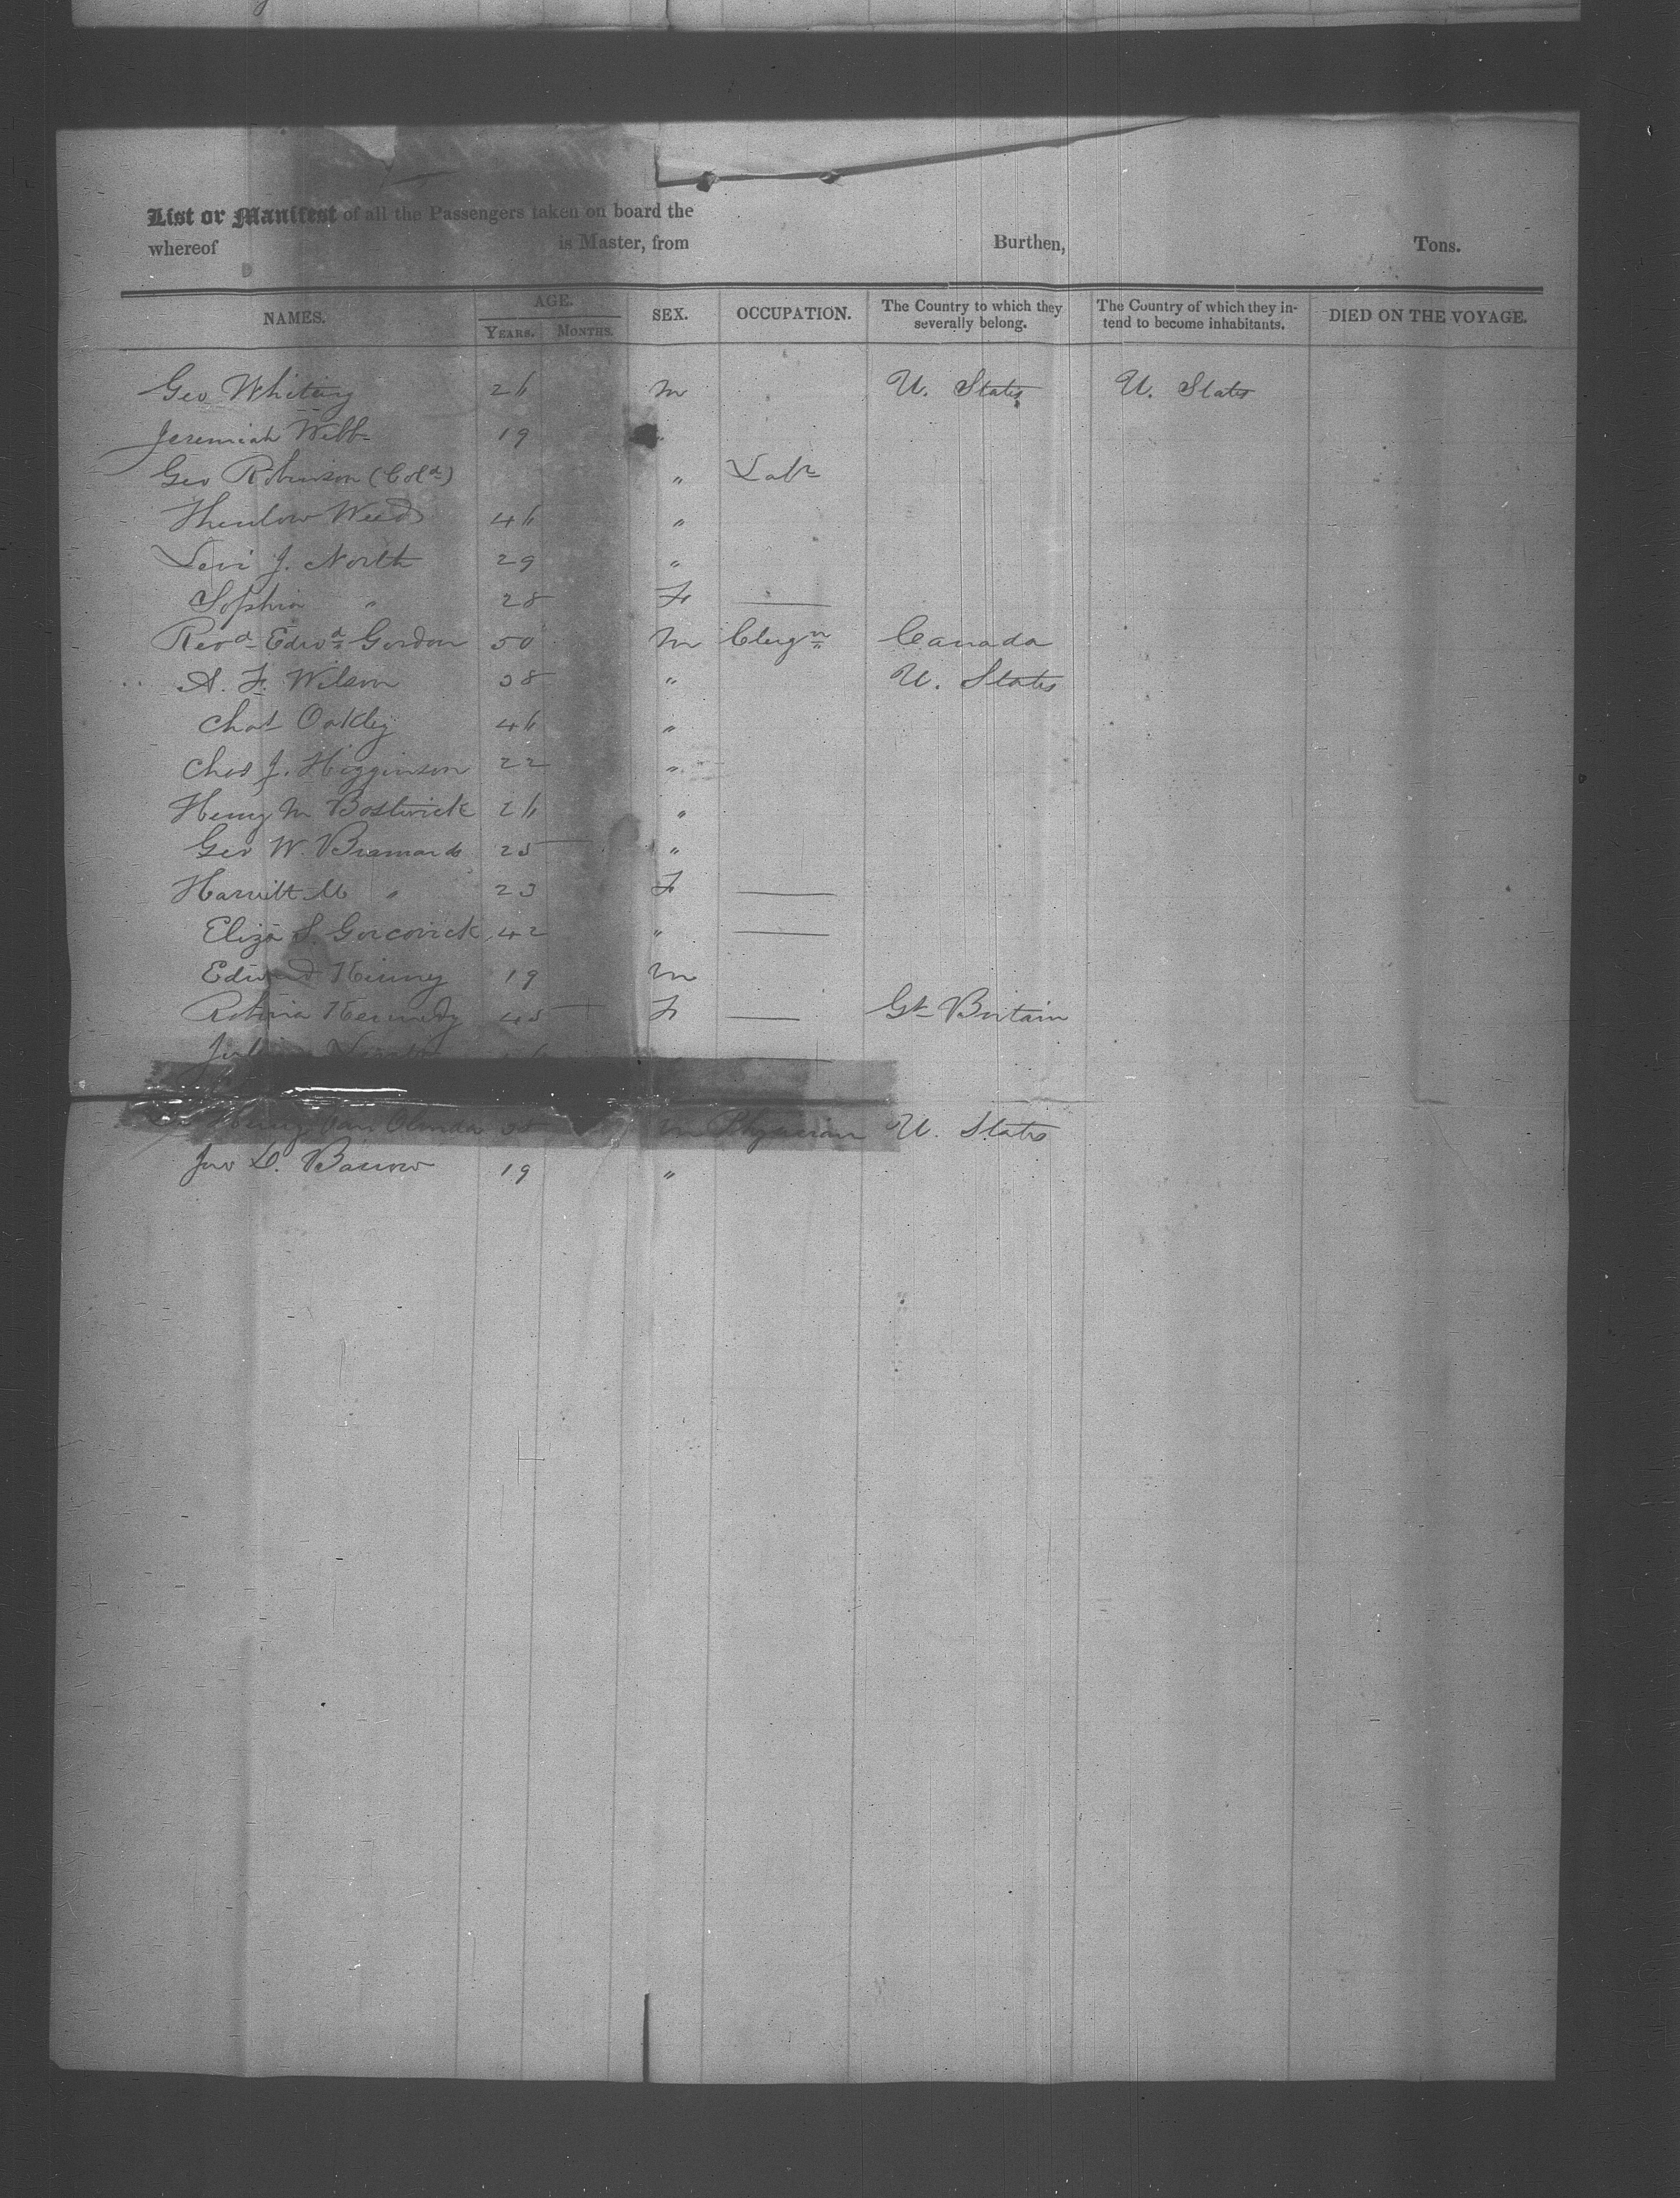 List or Manifest of all the Passengers taken on board the
whereof is Master, from Burthen, Tons.
NAMES. AGE. YEARS. MONTHS. SEX. OCCUPATION. The Country to which they severally belong. The Country of which they intend to become inhabitants. DIED ON THE VOYAGE.
Geo Whiting 26 M U. States U. States
Jeremiah Webb 19 "
Geo Robinson (Cold) " Labr
Thurlow Weed 46 "
Levi J. North 29 "
Sophia " 28 F —
Revd Edwd Gordon 50 M Clergn Canada
A. F. Wilson 38 " U. States
Chas Oakley 46 "
Chas J. Higginson 22 "
Henry M Bostwick 26 "
Geo W. 25 "
Harriett M " 23 F —
Eliza S. 42 " —
Edward Kinney 19 M
Kennedy 45 F — Gt Britain
Henry Van Olinda 35 M Physician U. States
Jno D. Barrow 19 "